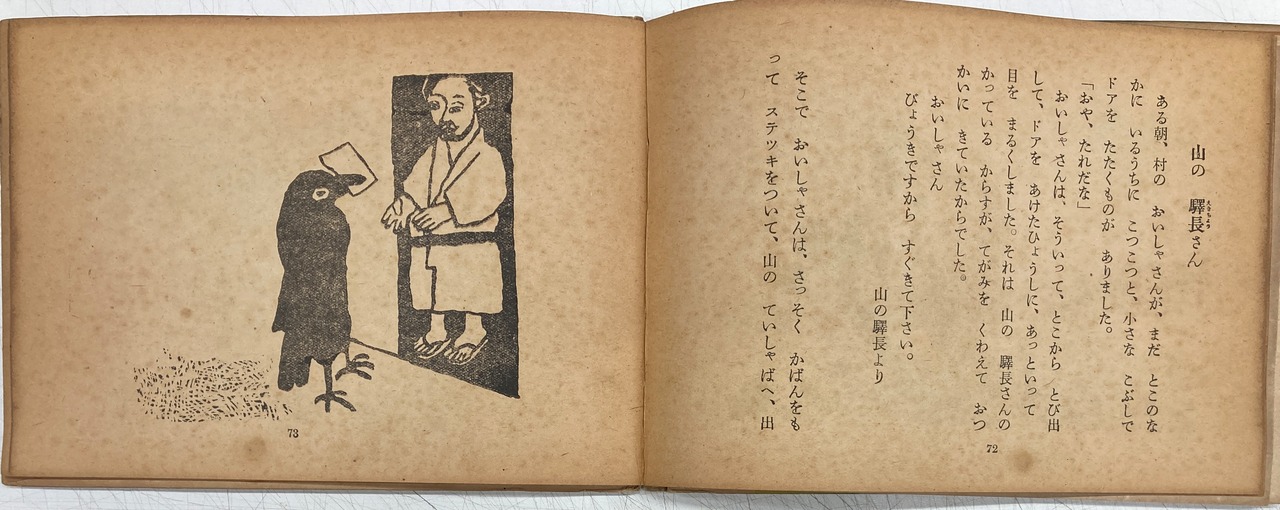 山の　驛長さん
えきちょう
ある朝、村の　おいしゃさんが、まだ　とこのな
かに　いるうちに　こつこつと、小さな　こぶしで
ドアを　たたくものが　ありました。
「おや、たれだな」
おいしゃさんは、そういって、とこから　とび出
して、ドアを　あけたひょうしに、あっといって
目を　まるくしました。それは　山の　驛長さんの
かっている　からすが、てがみを　くわえて　おつ
かいに　きていたからでした。
おいしゃさん
びょうきですから　すぐきて下さい。
山の驛長より
そこで　おいしゃさんは、さっそく　かばんをも
って　ステッキをついて、山の　ていしゃばへ、出
72
73